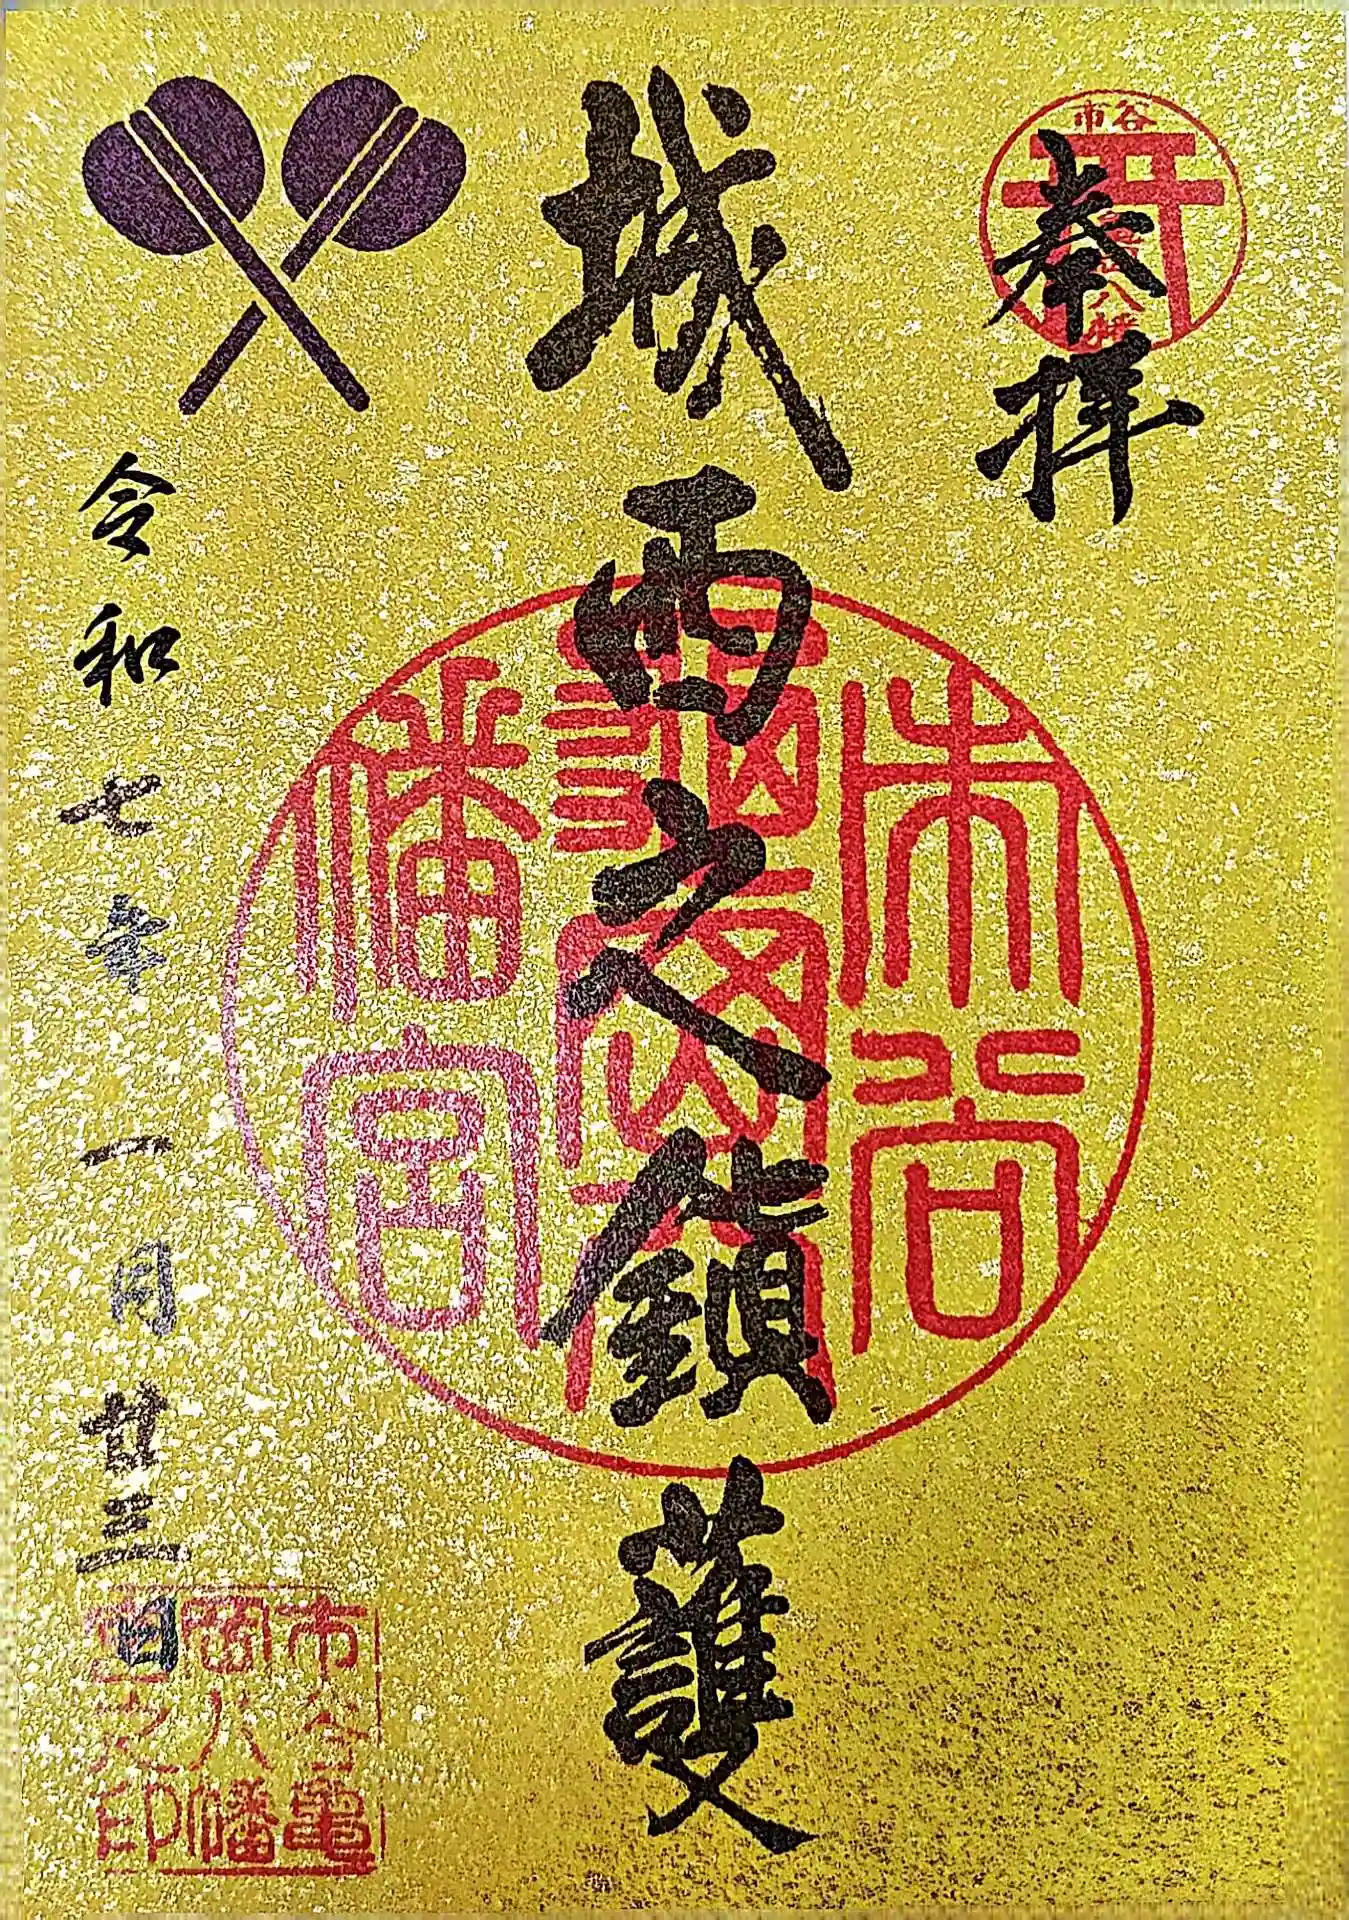 奉拝
市谷
亀岡八幡
城西之鎮護
市谷
亀岡八
幡宮
令和七年一月廿三日
市谷亀
岡八幡
宮之印